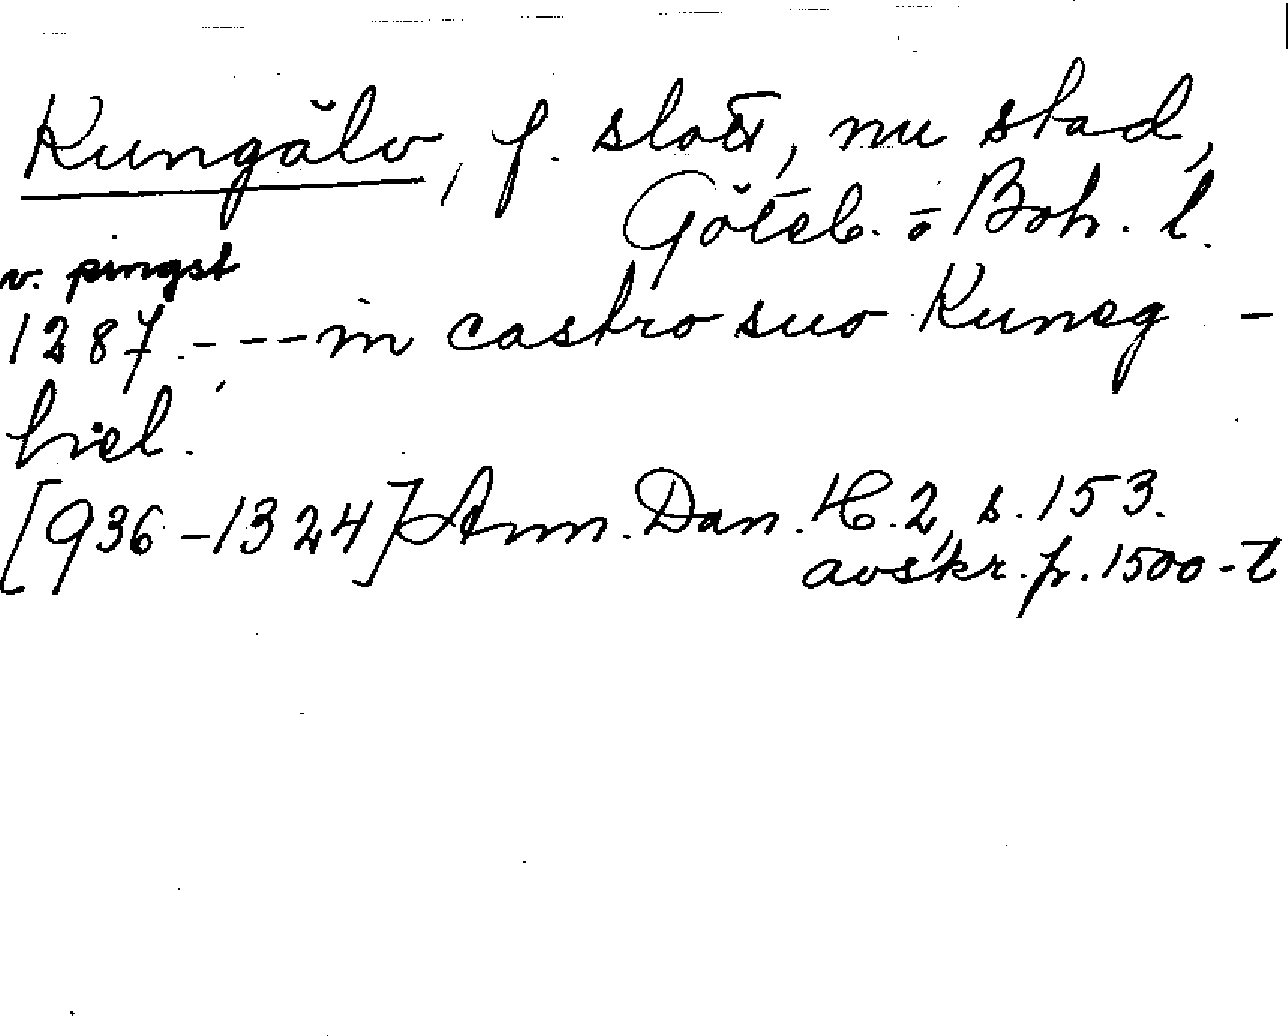 Kungälv, f. slott, nu stad,
Göteb. o Boh. l.
v. pingst
1287. - - - in castro suo Kuneg -
hiel.
[936-1324] Ann. Dan. H. 2, s. 153.
avskr. fr. 1500-t